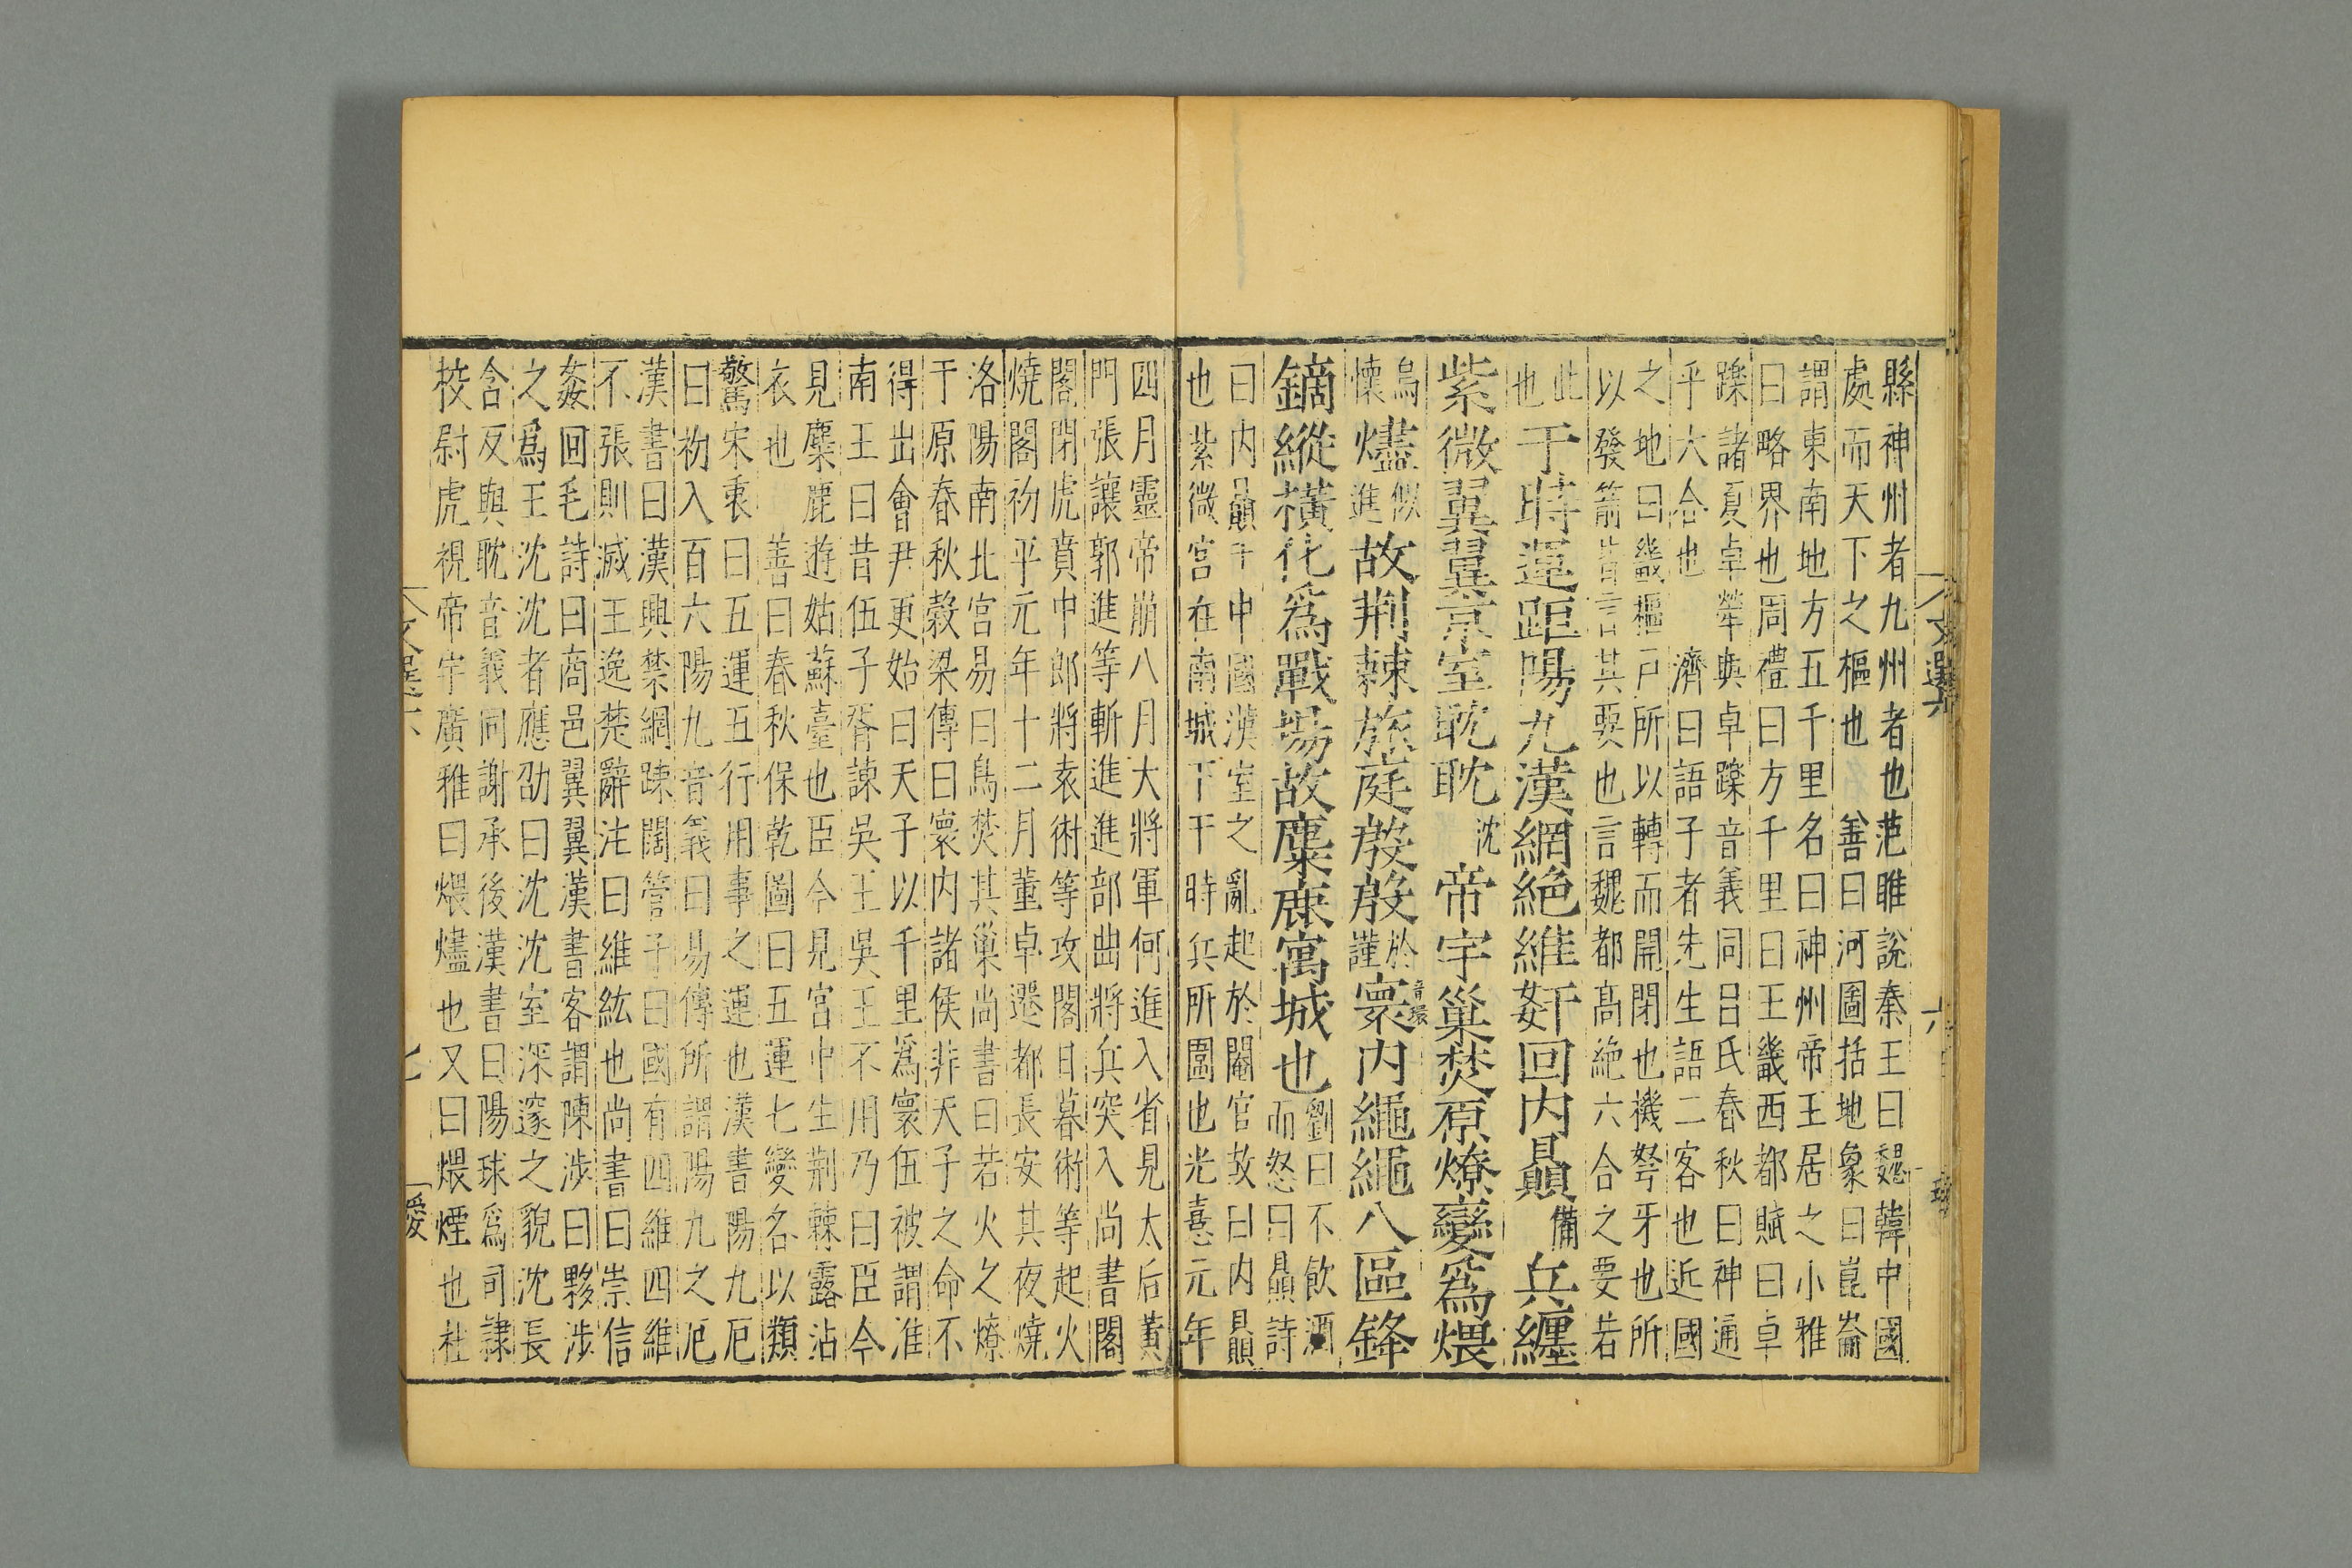 文選六 六
縣神州者九州者也范睢說秦王曰魏韓中國
處而天下之樞也 善曰河圖括地象曰崑崙
謂東南地方五千里名曰神州帝王居之小雅
曰略界也周禮曰方千里曰王畿西都賦曰卓
躒諸夏卓犖與卓躒音義同呂氏春秋曰神通
乎六合也 濟曰語子者先生語二客也近國
之地曰畿樞戸所以轉而開閉也機弩牙也所
以發箭皆言其要也言魏都髙絶六合之要若
此也于時運距陽九漢網絶維姧回内贔備兵纏
紫微翼翼京室耽耽沈帝宇巢焚原燎變爲煨
烏懷燼似進故荆棘旅庭殷殷於謹寰音環内繩繩八區鋒
鏑縱橫化爲戰場故麋鹿寓城也劉曰不飲酒而怒曰贔詩
曰内贔于中國漢室之亂起於閹官故曰内贔
也紫微宮在南城下于時兵所圍也光熹元年
四月靈帝崩八月大將軍何進入省見太后黃
門張讓郭進等斬進進部曲將兵突入尚書閣
閣閉虎賁中郎將袁術等攻閣日暮術等起火
燒閣初平元年十二月董卓遷都長安其夜燒
洛陽南北宮易曰鳥焚其巢尚書曰若火之燎
于原春秋穀梁傳曰寰内諸侯非天子之命不
得出會尹更始曰天子以千里爲寰伍被謂淮
南王曰昔伍子胥諫吳王吳王不用乃曰臣今
見麋鹿遊姑蘇臺也臣今見宮中生荆棘露沾
衣也 善曰春秋保乾圖曰五運七變名以類
驚宋衷曰五運五行用事之運也漢書陽九厄
曰初入百六陽九音義曰易傳所謂陽九之厄
漢書曰漢興禁網踈闊管子曰國有四維四維
不張則滅王逸楚辭注曰維紘也尚書曰崇信
姦回毛詩曰商邑翼翼漢書客謂陳涉曰夥涉
之爲王沈沈者應劭曰沈沈室深邃之貌沈長
含反與耽音義同謝承後漢書曰陽球爲司隷
校尉虎視帝宇廣雅曰煨燼也又曰煨煙也杜
文選六 七